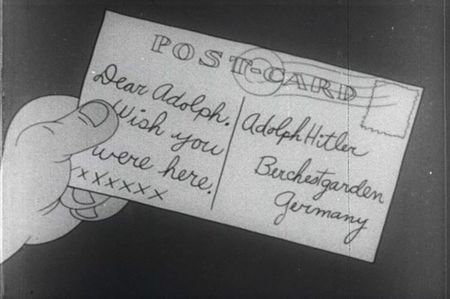 POST-CARD
Dear Adolph.
Wish you
were here.
xxxxxx
Adolph Hitler
Berchestgarden
Germany